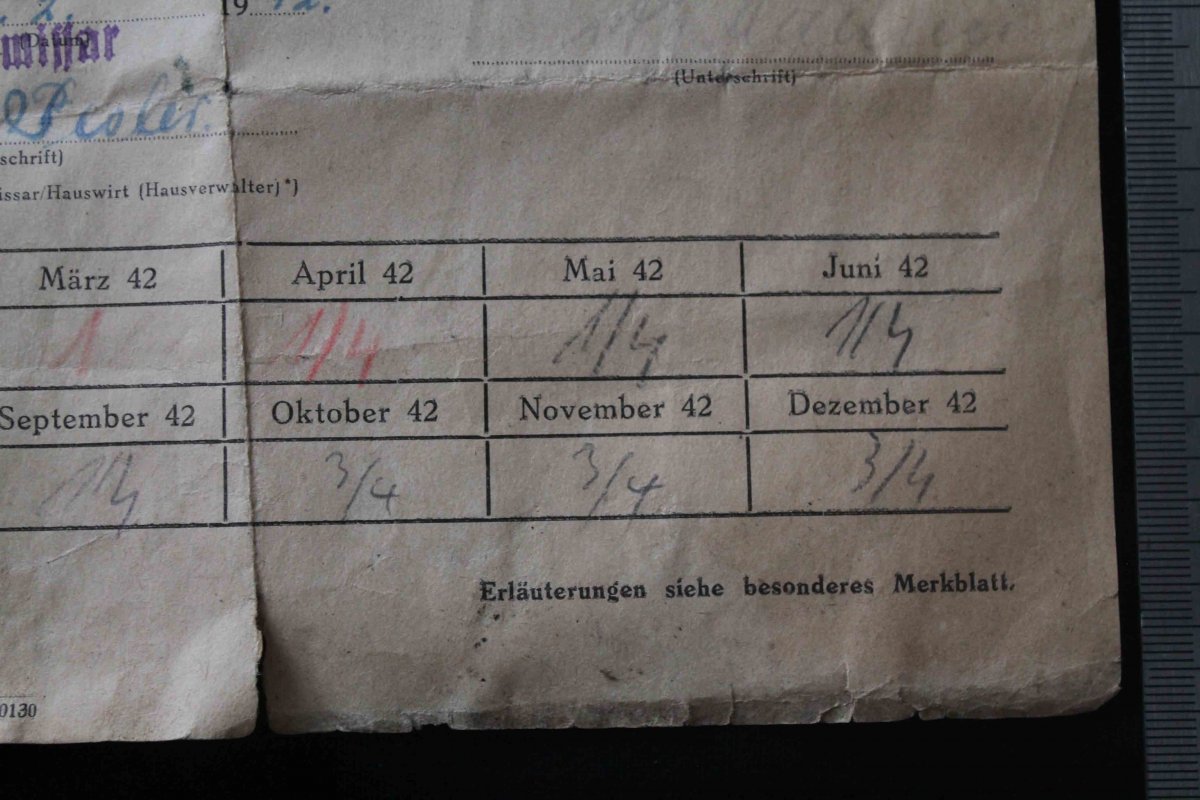 2. 1942.
(Datum)
missar
(Unterschrift)
schrift)
issar/Hauswirt (Hausverwalter)*)
März 42 April 42 Mai 42 Juni 42
1 1/4 1/4 1/4
September 42 Oktober 42 November 42 Dezember 42
1/4 3/4 3/4 3/4
Erläuterungen siehe besonderes Merkblatt.
0130